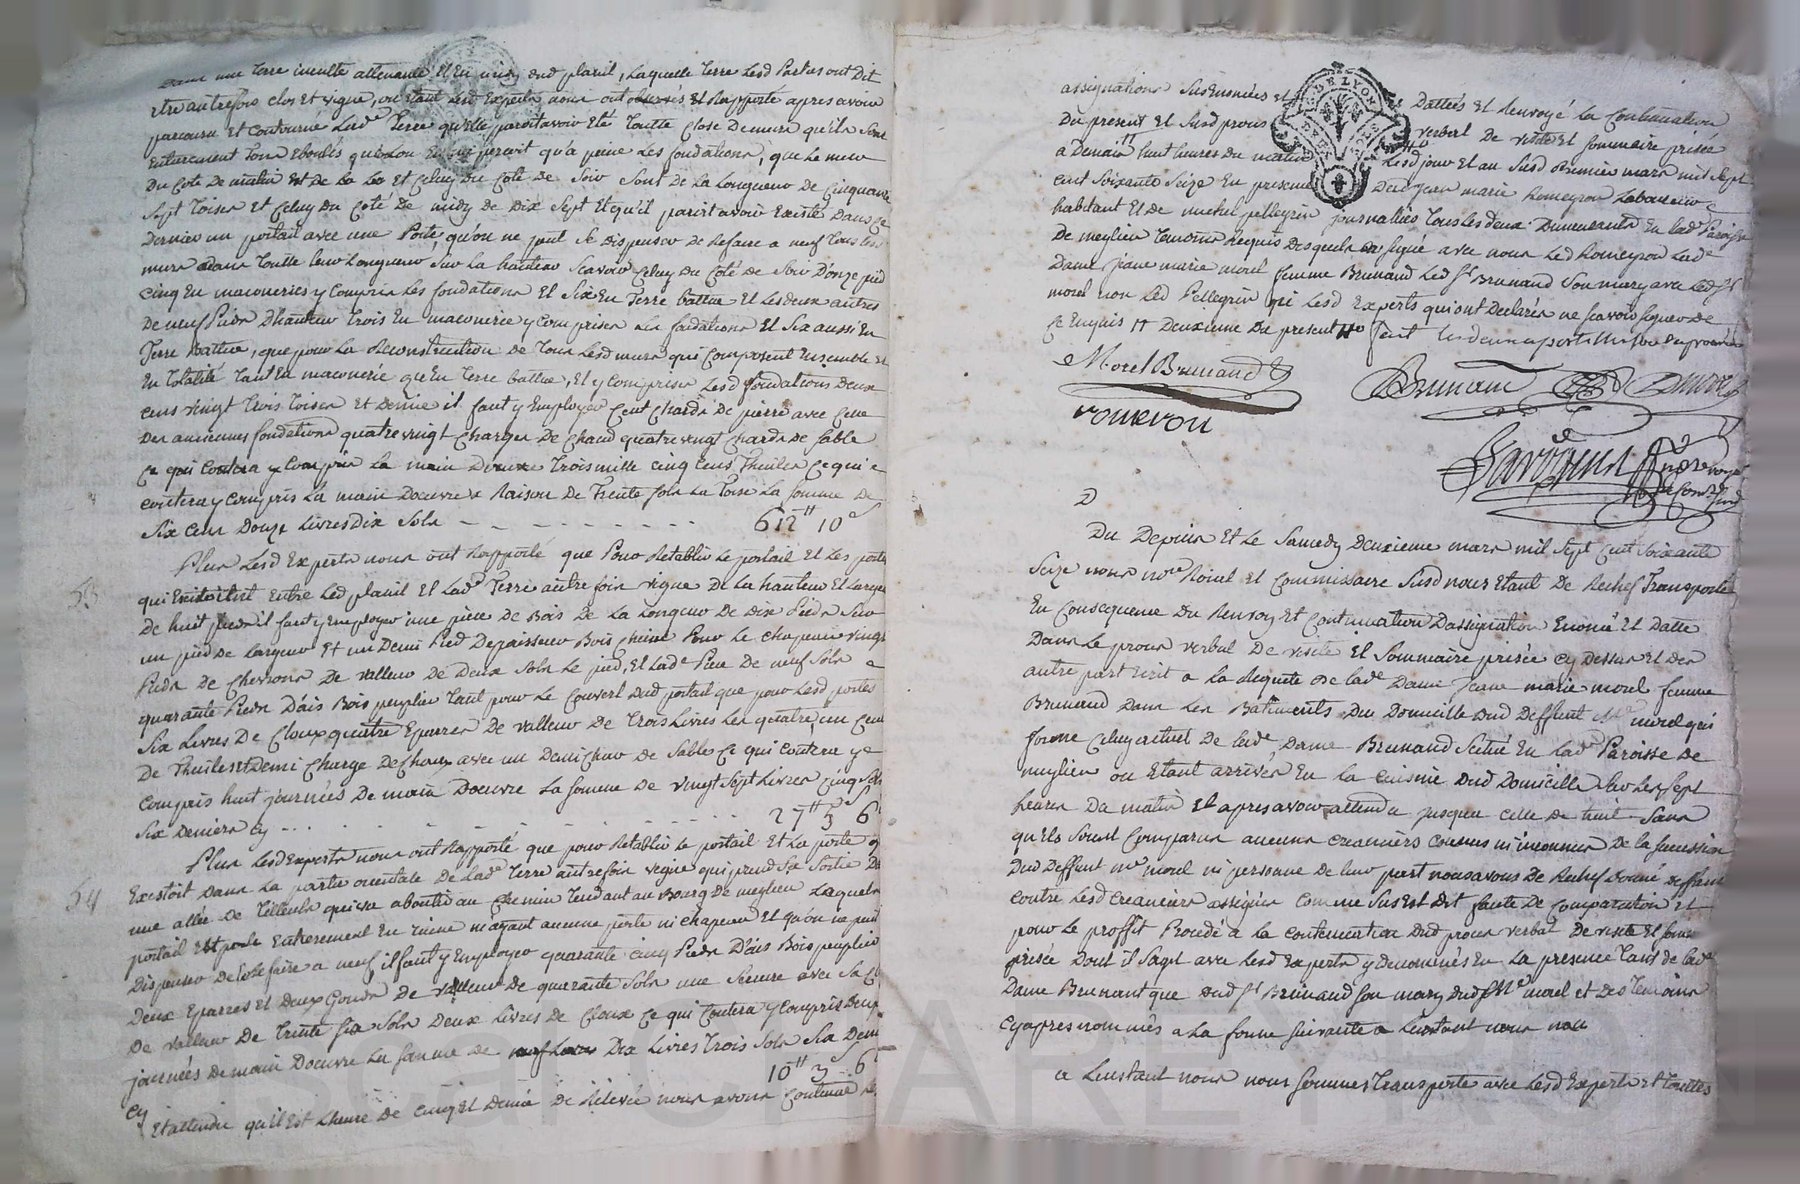 dans une Terre inculte attenante Et En un dud plaril, Laquelle Terre Lesd Parties ont Dit
Etre autrefois clos Et vigne, ou Etant lesd Experts nous ont observés Et Rapporté apres avoir
parcouru Et Contourné Lade Terre qu'elle paroit avoir Eté Toutte Close De murs qu'ils sont
Entierement Tous Eboulés que Lon n'apperçoit qu'a peine Les fondations, que Le mur
Du Coté De matin et De Et Celuy Du Coté de Soir Sont De La Longueur De Cinquante
Sept Toises Et Celuy Du Coté De midy de Dix Sept Et qu'il paroit avoir Existé Dans Ce
Dernier un portail avec une Porte, qu'on ne peut Se Dispenser de Refaire a neuf Tous lesd
murs dans Toutte Leur Longueur Sur La hauteur Scavoir Celuy Du Coté de Soir D'onze pied
Cinq En maconneries y Compris Les fondations Et Six En Terre battue Et Les deux autres
De neuf Pieds D'hauteur Trois En maconnerie y Comprises Les fondations Et Six aussi En
Terre Battue, que pour La Reconstruction de Tous Lesd murs qui Composent Ensemble Et
En Totalité Tant En maconerie qu'En Terre battue, Et y Comprises Lesd fondations Deux
Cens vingt Trois Toises Et Demie il faut y Employer Cent Chards De pierre avec Celle
Des anciennes fondations quatre vingt Charges De Chaud quatre vingt Chards de Sable
Ce qui Coutera y Compris La main Dœuvre Trois mille Cinq Cens Thuiles Ce qui
Coutera y Compris La main Dœuvre a Raison De Trente Sols La Toise La Somme De
Six Cens Douze Livres Dix Sols - - - - - - - 612ᵗᵗ 10ˢ
53 Plus Lesd Experts nous ont Rapporté que Pour Retablir Le portail Et Les portes
qui Existoient Entre Led plaril Et Lade Terre autrefois vigne De La hauteur Et Largeur
De huit pieds il faut y Employer une piece de Bois De La Longueur De Dix Pieds Sur
un pied De Largeur Et un Demi Pied Depaisseur Bois Pour Le Chapeau vingt
Pieds De Chevrons De valleur De Deux Sols Le pied, Et Lade Piece De neuf Sols
quarante Pieds D'ais Bois peuplier Tant pour Le Couvert Dud portail que pour Lesd portes
Six Livres De Cloux quatre Eparres De valleur De Trois Livres Les quatre, un Cent
De Thuiles Et Demi Charge De Chaux avec un Demi Char De Sable Ce qui Coutera y
Compris huit journées De main Dœuvre La Somme De Vingt Sept Livres Cinq Sols
Six Deniers Cy - - - - - - - - 27ᵗᵗ 3ˢ 6
54 Plus Lesd Experts nous ont Rapporté que pour Retablir Le portail Et La porte
Existoit Dans La partie orientale De Lade Terre autrefois vigne qui prend Sa Sortie Da
une allée De Tilleuls qui va aboutir au Chemin Tendant au Bourg De meylieu Laquelle
portail Et porte Entierement En ruine n'ayant aucune porte ni Chapeau Et qu'on ne peut
Dispenser De Les faire a neuf il faut y Employer quarante Cinq Pieds D'ais Bois peuplier
Deux Eparres Et Deux Gonds De valleur De quarante Sols une Serrure avec Sa
De valleur De Trente Six Sols Deux Livres De Cloux Ce qui Coutera y Compris Deux
journées De main Dœuvre La Somme de Dix Livres Trois Sols Six Deni
Cy 10ᵗᵗ 3ˢ 6
Et attendu qu'il Est L'heure De Cinq Et Demie De Relevée nous avons Continué
assignations Susenoncées Et Dattées Et Renvoyé La Continuation
Du present Et Susd proces verbal De visite Et Sommaire prisée
a Demain huit heures Du matin Lesd jour Et an Susd Premier mars mil Sept
Cent Soixante Seize En presence De Jean marie Romeyron Laboureur
habitant Et de michel pellegrin journallier Tous Les deux Demeurants En Lade Paroisse
De meylieu Temoins Requis Desquels a Signé avec nous Led Romeyron Lade
Dame Jeane marie morel femme Brunand Led Sr Brunand Son mary avec Led Sr
morel non Led Pellegrin ni Lesd Experts qui ont Declarés ne Scavoir Signer de
Ce Enquis Deuxieme Du present
Morel Brunand Brunand Morel
romeron
2
Du Depuis Et Le Samedy Deuxieme mars mil Sept Cent Soixante
Seize nous nore Roial et Commissaire Susd nous Etant De Rechef Transporté
En Consequence Du Renvoy Et Continuation Dassignation Enoncé Et Datté
Dans Le proces verbal De visite Et Sommaire prisée Cy Dessus Et Des
autre part Ecrit a La Requete De Lade Dame Jeane marie morel femme
Brunand Dans Les Batiments Du Domicille Dud Deffunt Me morel qui
forme Celuy actuel De Lade Dame Brunand Scitué En Lade Paroisse De
meylieu ou Etant arrivés En La Cuisine Dud Domicille Sur Les Sept
heures Du matin Et apres avoir attendu jusques Celle De huit Sans
qu'ils Soient Comparus aucuns Creanciers Connus ni inconnus De La Succession
Dud Deffunt me morel ni personne De Leur part nous avons De Rechef Donné deffaut
Contre Lesd Creanciers assignés Comme Sus Est Dit faute De Comparution Et
pour Le proffit Procédé a La Continuation Dud proces verbal De visite Et Som
prisée Dont il Sagit avec Lesd Experts y Denommés En La presence Tant de Lade
Dame Brunant que Dud Sr Brunand Son mary Dud Me morel et Des Temoins
Cy apres nommés a La forme Suivante a Linstant nous nou
a Linstant nous nous Sommes Transporté avec Lesd Experts Et Touttes